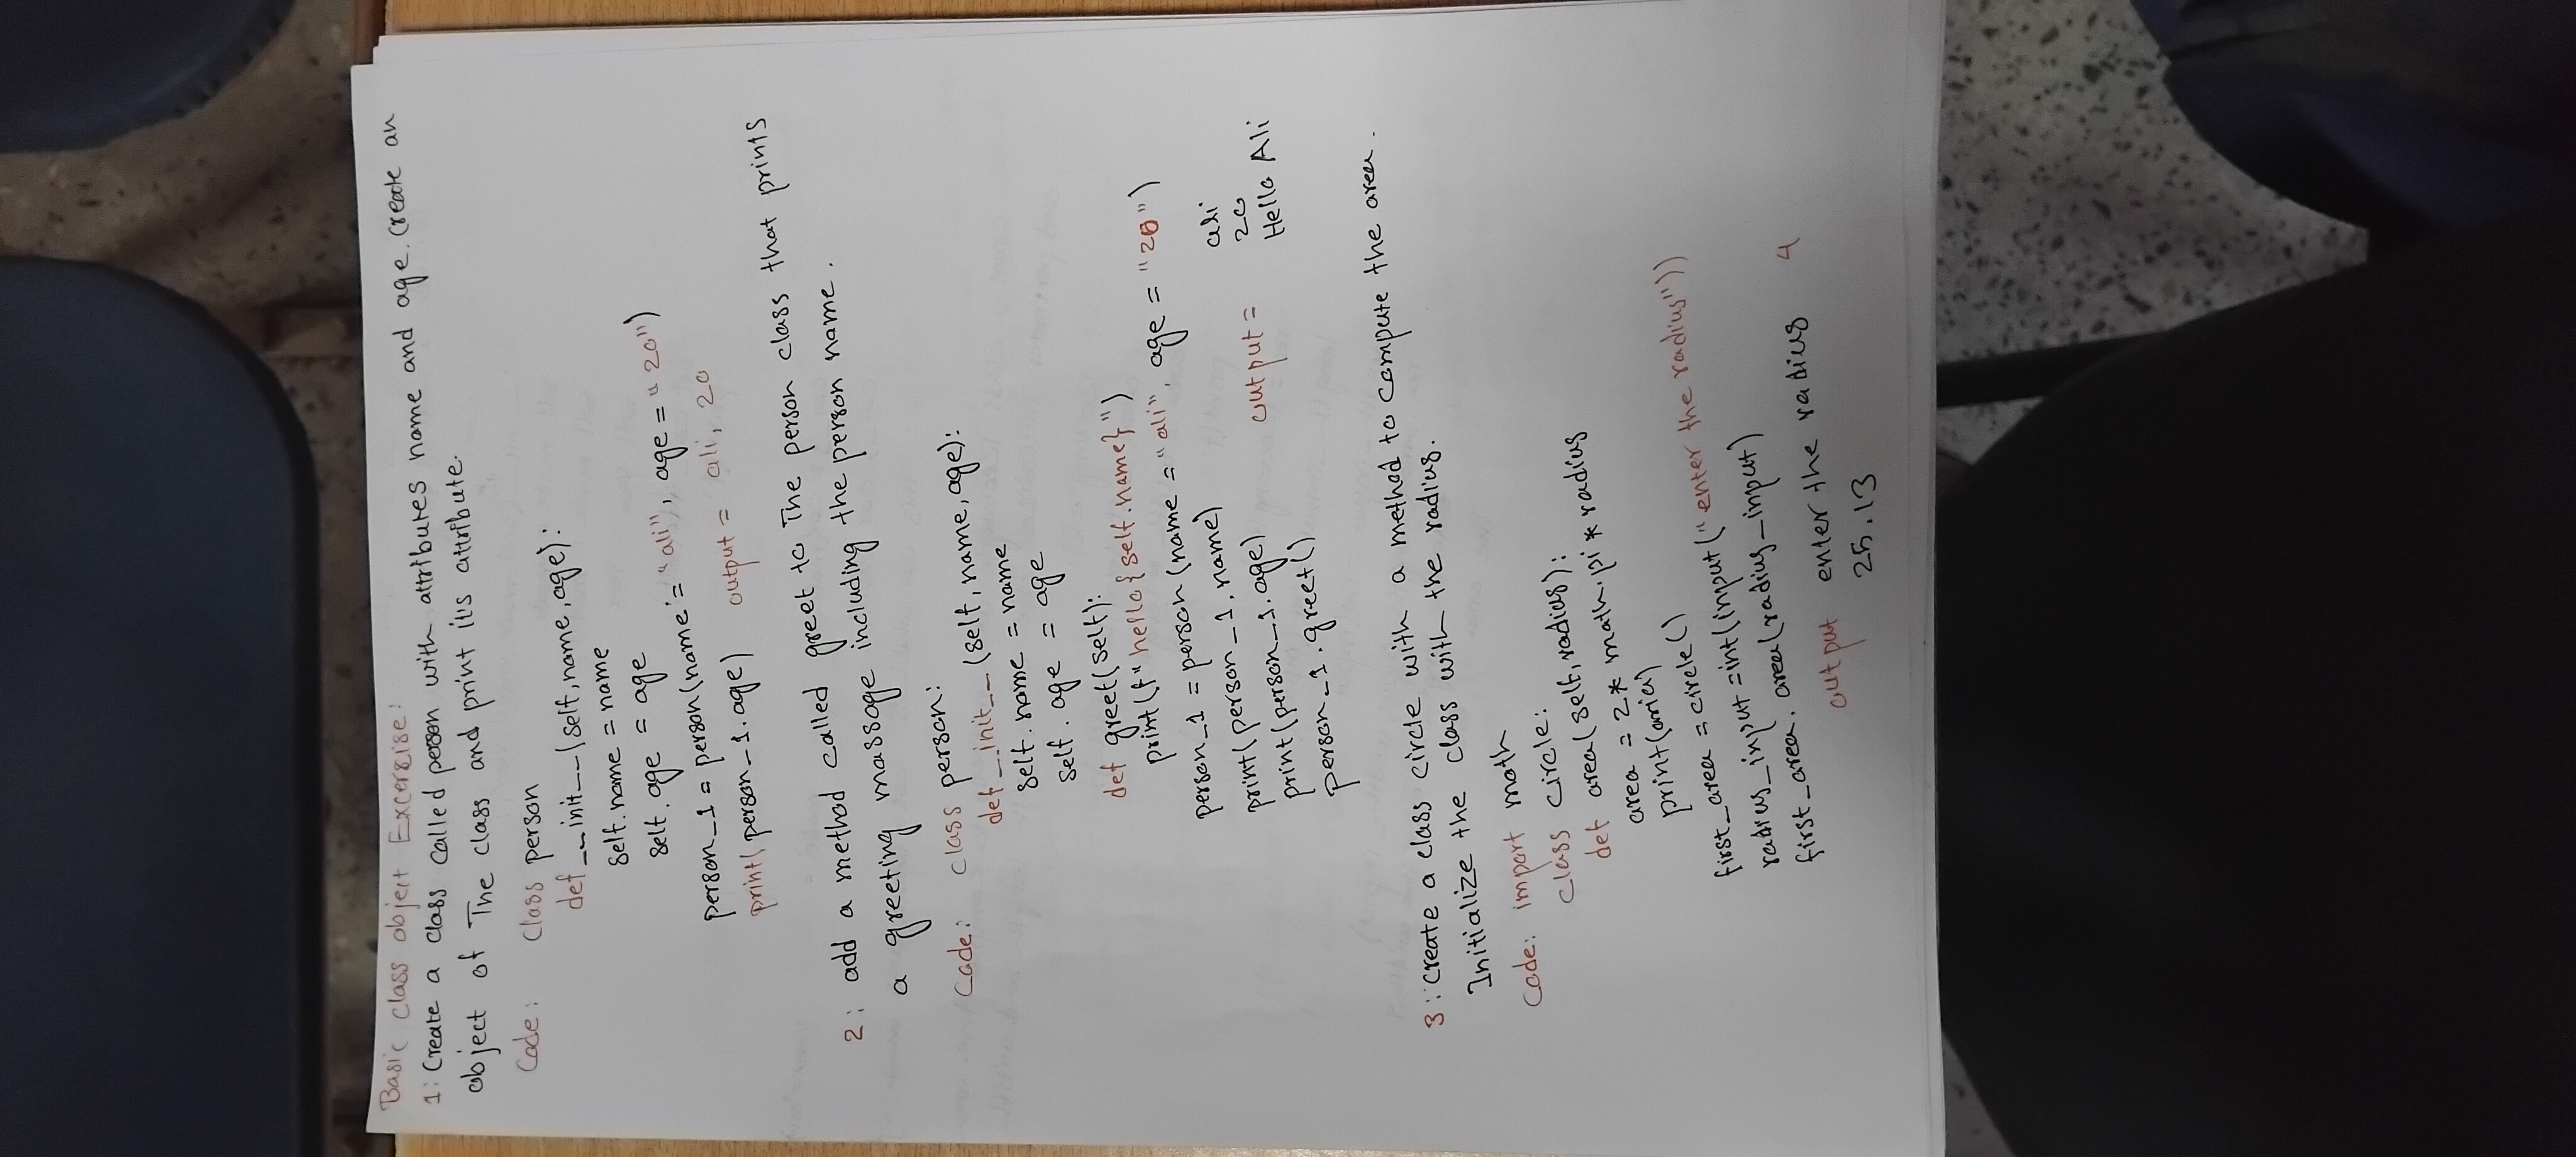 Basic class object Excersise:
1: Create a class called person with attributes name and age. Create an
object of The class and print it's attribute.
Code: Class person
def __init__(self,name,age):
self.name = name
self.age = age
person_1 = person(name = "ali", age = "20")
print(person_1.age) output = ali, 20
2: add a method called greet to The person class that prints
a greeting massage including the person name.
Code: class person:
def __init__(self,name,age):
self.name = name
self.age = age
def greet(self):
print(f"hello{self.name}")
person_1 = person(name = "ali", age = "20")
print(person_1.name)
print(person_1.age)
person_1.greet()
output = ali
20
Hello Ali
3: create a class circle with a method to compute the area.
Initialize the class with the radius.
Code: import math
class circle:
def area(self,radius):
area = 2* math.pi * radius
print(aria)
first_area = circle()
radius_input =int(input("enter the radius"))
first_area. area(radius_input)
output enter the radius 4
25.13